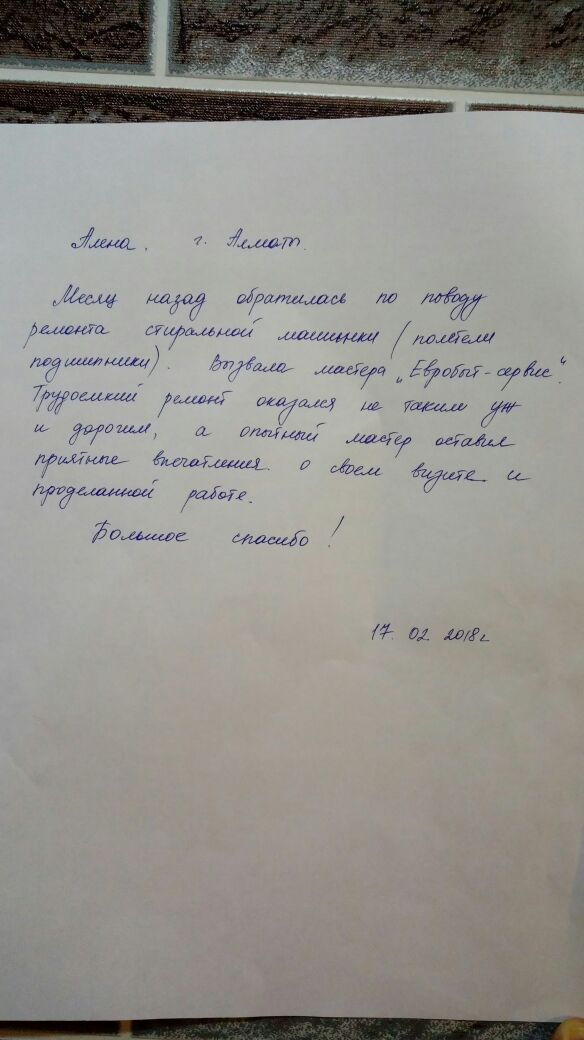 Алена. г. Алматы.
Месяц назад обратилась по поводу
ремонта стиральной машинки (полетели
подшипники). Вызвала мастера „Евробыт-сервис".
Трудоемкий ремонт оказался не таким уж
и дорогим, а опытный мастер оставил
приятные впечатления о своем визите и
проделанной работе.
Большое спасибо!
17. 02. 2018г